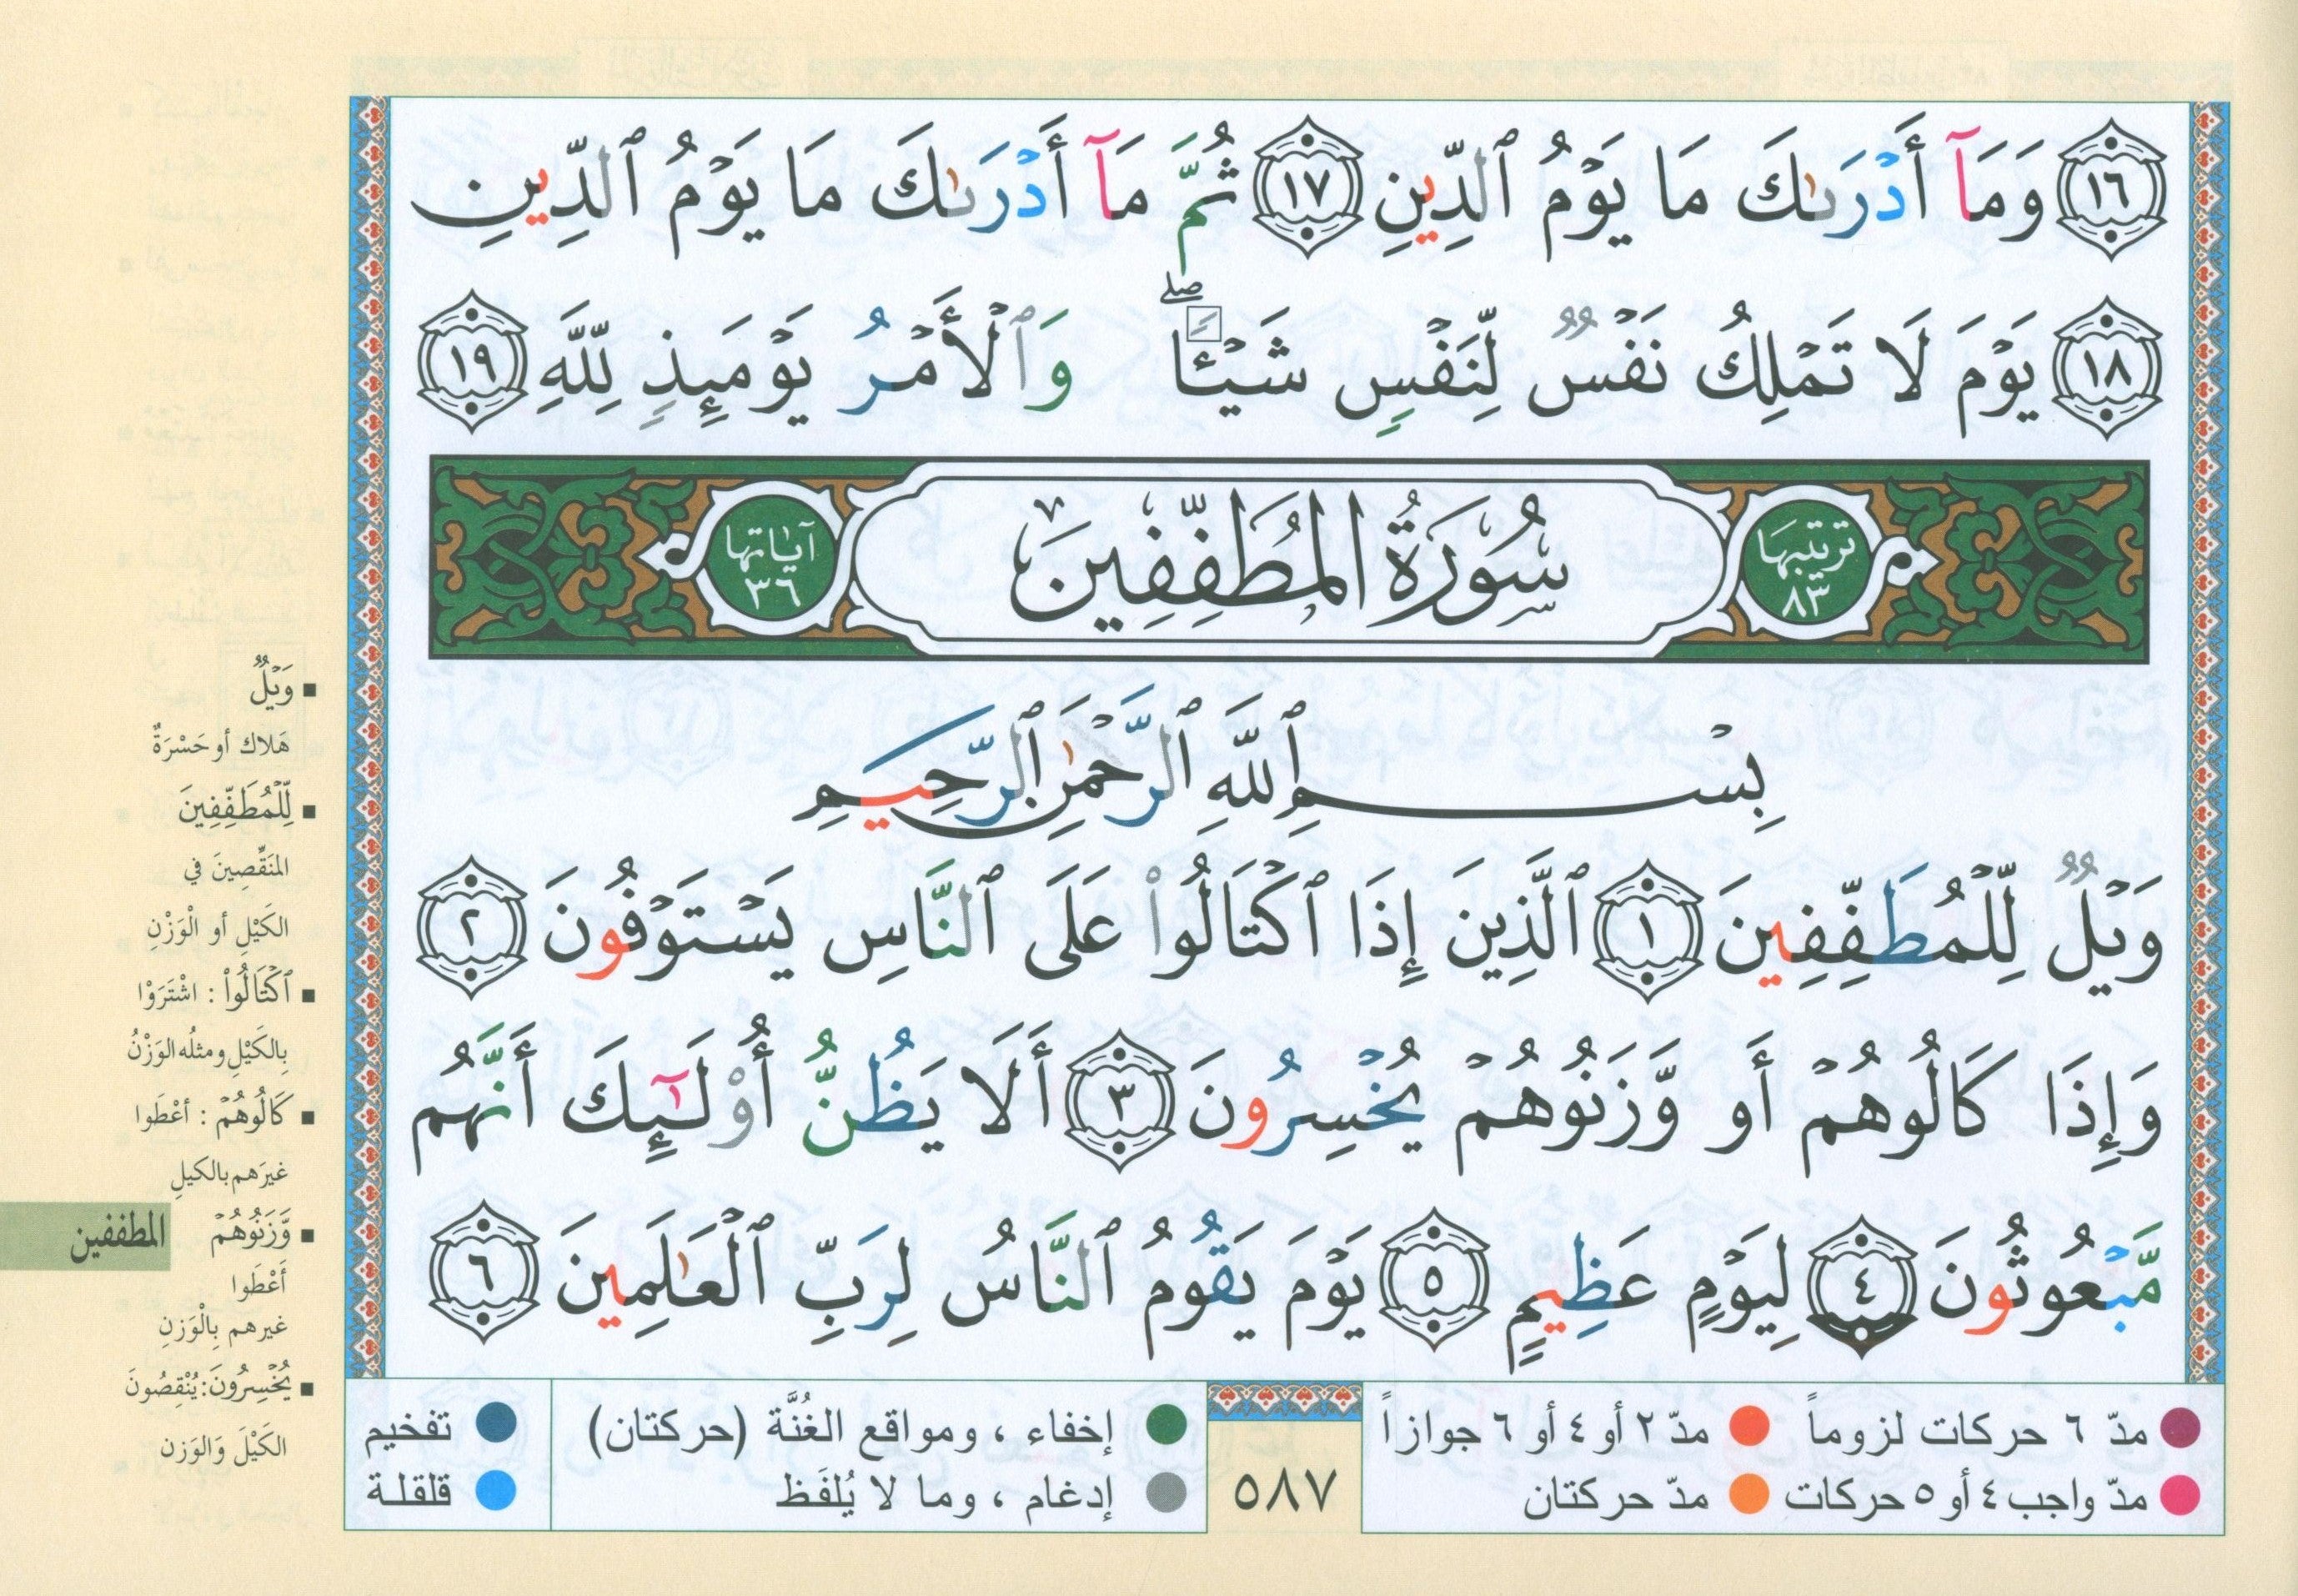 ﴿١٦﴾ وَمَآ أَدْرَىٰكَ مَا يَوْمُ ٱلدِّينِ ﴿١٧﴾ ثُمَّ مَآ أَدْرَىٰكَ مَا يَوْمُ ٱلدِّينِ
﴿١٨﴾ يَوْمَ لَا تَمْلِكُ نَفْسٌ لِّنَفْسٍ شَيْـًٔا ۖ وَٱلْأَمْرُ يَوْمَئِذٍ لِّلَّهِ ﴿١٩﴾
ترتيبها ٨٣ سُورَةُ المُطَفِّفِينَ آياتها ٣٦
بِسْمِ ٱللَّهِ ٱلرَّحْمَٰنِ ٱلرَّحِيمِ
وَيْلٌ لِّلْمُطَفِّفِينَ ﴿١﴾ ٱلَّذِينَ إِذَا ٱكْتَالُوا۟ عَلَى ٱلنَّاسِ يَسْتَوْفُونَ ﴿٢﴾
وَإِذَا كَالُوهُمْ أَو وَّزَنُوهُمْ يُخْسِرُونَ ﴿٣﴾ أَلَا يَظُنُّ أُو۟لَـٰٓئِكَ أَنَّهُم
مَّبْعُوثُونَ ﴿٤﴾ لِيَوْمٍ عَظِيمٍ ﴿٥﴾ يَوْمَ يَقُومُ ٱلنَّاسُ لِرَبِّ ٱلْعَـٰلَمِينَ ﴿٦﴾
▪ وَيْلٌ
هَلاك أو حَسْرَةٌ
▪ لِّلْمُطَفِّفِينَ
المنَقِّصِينَ في
الكَيْلِ أو الْوَزْنِ
▪ ٱكْتَالُوا۟ : اشْتَرَوْا
بِالكَيْلِ ومثلُه الوَزْنُ
▪ كَالُوهُمْ : أعْطَوا
غيرَهم بالكيلِ
▪ وَّزَنُوهُمْ
أَعْطَوا
غيرهم بِالْوَزنِ
▪ يُخْسِرُونَ: يُنْقِصُونَ
الكَيْلَ وَالوَزن
المطففين
مدّ ٦ حركات لزوماً ● مدّ ٢ أو ٤ أو ٦ جوازاً
مدّ واجب ٤ أو ٥ حركات ● مدّ حركتان
٥٨٧
إخفاء ، ومواقع الغُنَّة (حركتان)
إدغام ، وما لا يُلفَظ
تفخيم
قلقلة